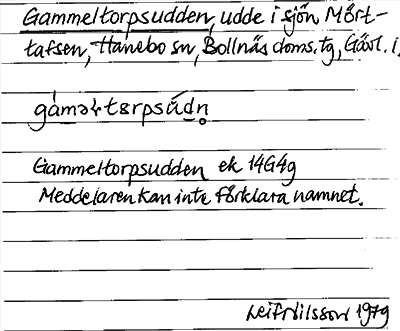 Gammeltorpsudden, udde i sjön Mört-
tafsen, Hanebo sn, Bollnäs doms. tg, Gävl. l.
gàməɫtɞrpsúdn̥
Gammeltorpsudden ek 14G4g
Meddelaren kan inte förklara namnet.
Leif Nilsson 1979